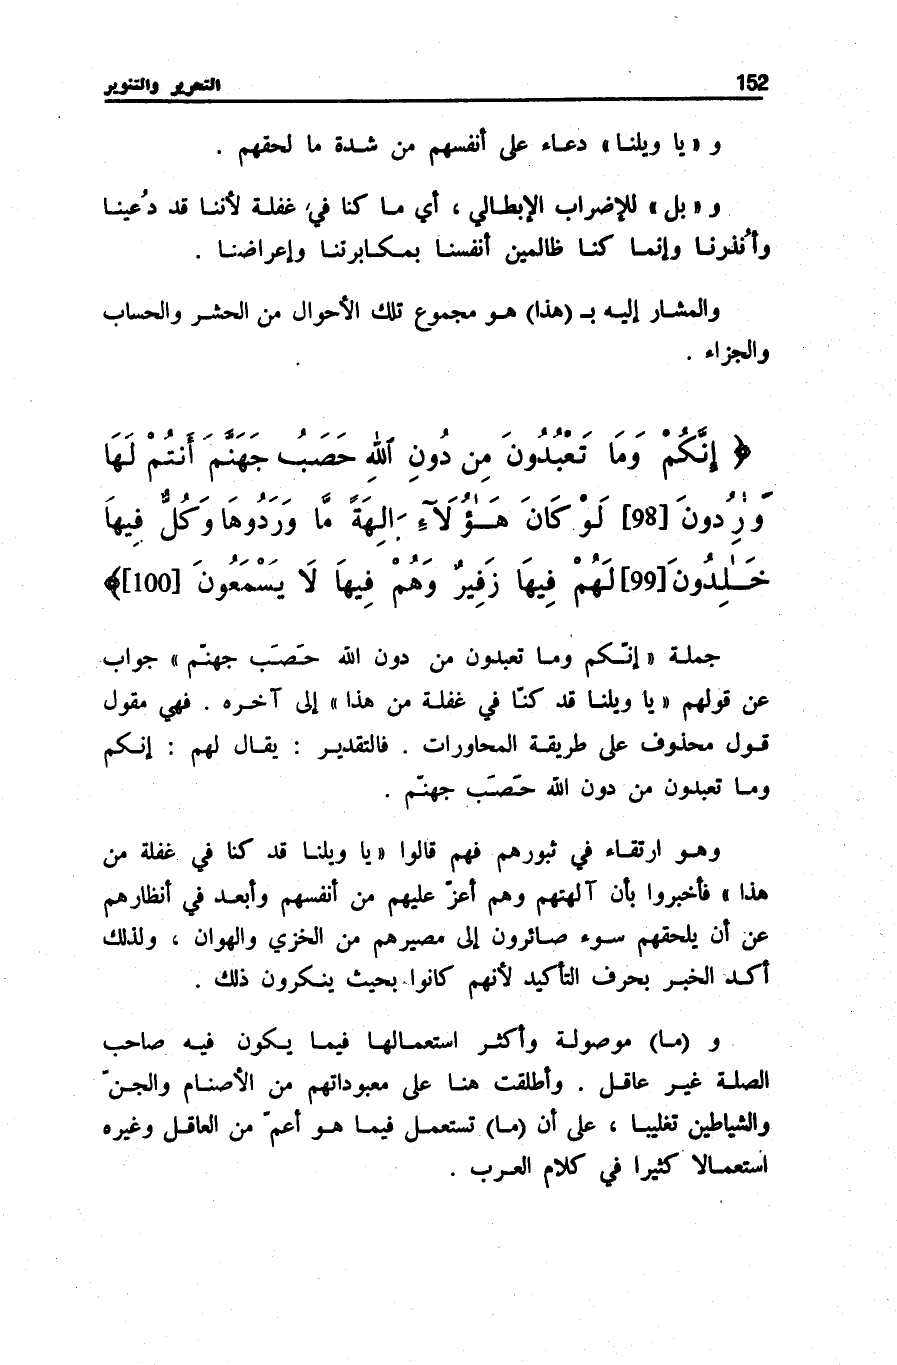 152 التحرير والتنوير
و « يا ويلنا » دعاء على أنفسهم من شدة ما لحقهم .
و « بل » للإضراب الإبطالي ، أي ما كنا في غفلة لأننا قد دُعينا
وأُنذرنا وإنما كنا ظالمين أنفسنا بمكابرتنا وإعراضنا .
والمشار إليه بـ (هذا) هو مجموع تلك الأحوال من الحشر والحساب
والجزاء .
﴿ إِنَّكُمْ وَمَا تَعْبُدُونَ مِن دُونِ ٱللَّهِ حَصَبُ جَهَنَّمَ أَنتُمْ لَهَا
وَٰرِدُونَ [98] لَوْ كَانَ هَـٰؤُلَآءِ ءَالِهَةً مَّا وَرَدُوهَا وَكُلٌّ فِيهَا
خَـٰلِدُونَ [99] لَهُمْ فِيهَا زَفِيرٌ وَهُمْ فِيهَا لَا يَسْمَعُونَ [100] ﴾
جملة « إنّكم وما تعبدون من دون الله حَصَب جهنّم » جواب
عن قولهم « يا ويلنا قد كنّا في غفلة من هذا » إلى آخره . فهي مقول
قول محذوف على طريقة المحاورات . فالتقدير : يقال لهم : إنكم
وما تعبدون من دون الله حَصَب جهنّم .
وهو ارتقاء في ثبورهم فهم قالوا « يا ويلنا قد كنا في غفلة من
هذا » فأخبروا بأن آلهتهم وهم أعزّ عليهم من أنفسهم وأبعد في أنظارهم
عن أن يلحقهم سوء صائرون إلى مصيرهم من الخزي والهوان ، ولذلك
أكد الخبر بحرف التأكيد لأنهم كانوا بحيث ينكرون ذلك .
و (ما) موصولة وأكثر استعمالها فيما يكون فيه صاحب
الصلة غير عاقل . وأطلقت هنا على معبوداتهم من الأصنام والجنّ
والشياطين تغليبا ، على أن (ما) تستعمل فيما هو أعمّ من العاقل وغيره
استعمالا كثيرا في كلام العرب .